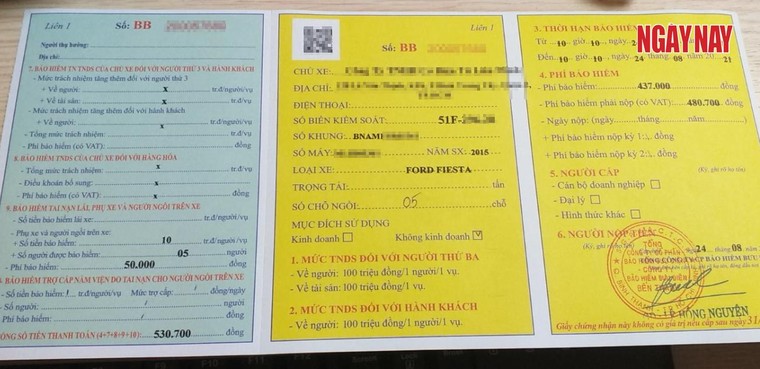 Liên 1
Số: BB
Người thụ hưởng:
Địa chỉ:
7. BẢO HIỂM TN DS CỦA CHỦ XE ĐỐI VỚI NGƯỜI THỨ 3 VÀ HÀNH KHÁCH
- Mức trách nhiệm tăng thêm đối với người thứ 3
+ Về người: x tr.đ/người/vụ
+ Về tài sản: x tr.đ/vụ
- Mức trách nhiệm tăng thêm đối với hành khách
+ Về người: x tr.đ/người/vụ
- Tổng mức trách nhiệm: tr.đ/vụ
- Phí bảo hiểm (có VAT): đồng
8. BẢO HIỂM TNDS CỦA CHỦ XE ĐỐI VỚI HÀNG HÓA
- Tổng mức trách nhiệm: x tr.đ/vụ
- Điều khoản bổ sung: x
- Phí bảo hiểm (có VAT): x đồng
9. BẢO HIỂM TAI NẠN LÁI, PHỤ XE VÀ NGƯỜI NGỒI TRÊN XE
- Số tiền bảo hiểm lái xe: tr.đ/người/vụ
- Phụ xe và người ngồi trên xe:
+ Số tiền bảo hiểm: 10 tr.đ/người/vụ
+ Số người được bảo hiểm: 05 người
- Phí bảo hiểm: 50.000 đồng
BẢO HIỂM TRỢ CẤP NẰM VIỆN DO TAI NẠN CHO NGƯỜI NGỒI TRÊN XE
- Số tiền bảo hiểm: tr.đ/người/vụ Mức trợ cấp: đồng/ngày
- Số người: người
- Phí bảo hiểm: đồng
TỔNG SỐ TIỀN THANH TOÁN (4+7+8+9+10): 530.700 đồng
Liên 1
Số: BB
CHỦ XE:
ĐỊA CHỈ:
ĐIỆN THOẠI:
SỐ BIỂN KIỂM SOÁT: 51F-
SỐ KHUNG: BNAMI
SỐ MÁY: NĂM SX: 2015
LOẠI XE: FORD FIESTA
TRỌNG TẢI: tấn
SỐ CHỖ NGỒI: 05 chỗ
MỤC ĐÍCH SỬ DỤNG
Kinh doanh Không kinh doanh
1. MỨC TNDS ĐỐI VỚI NGƯỜI THỨ BA
- Về người: 100 triệu đồng/1 người/1 vụ.
- Về tài sản: 100 triệu đồng/1 vụ.
2. MỨC TNDS ĐỐI VỚI HÀNH KHÁCH
- Về người: 100 triệu đồng/1 người/1 vụ.
3. THỜI HẠN BẢO HIỂM
NGAY NAY
Từ 10 giờ 10, ngày
Đến 10 giờ 10, ngày 24 tháng 08 năm 20 21
4. PHÍ BẢO HIỂM
- Phí bảo hiểm: 437.000 đồng
- Phí bảo hiểm phải nộp (có VAT): 480.700 đồng
- Ngày nộp: (ngày tháng năm )
+ Phí bảo hiểm nộp kỳ 1: đồng
+ Phí bảo hiểm nộp kỳ 2: đồng
5. NGƯỜI CẤP
- Cán bộ doanh nghiệp
- Đại lý
- Hình thức khác
6. NGƯỜI NỘP TIỀN
24 08
TỔNG
CÔNG TY CỔ PHẦN
CÔNG TY
BẢO HIỂM BƯU ĐIỆN
BẾN
HỒNG NGUYÊN
Giấy chứng nhận này không có giá trị nếu cấp sau ngày 31